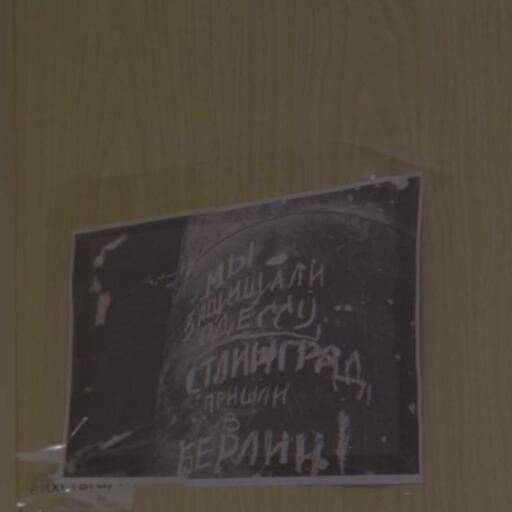 МЫ
ЗАЩИЩАЛИ
ОДЕССУ,
СТЛИНГРАД,
ПРИШЛИ
В
БЕРЛИН!